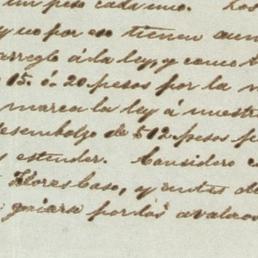 un peso cada uno. Los
y no por eso tienen aun
arreglo á la ley, y como
15. ó 20 pesos por la
marca la ley á nuestr
desembolzo de 512 pesos p
estender. Considero
Flores Caso, y antes de
por los avaluos